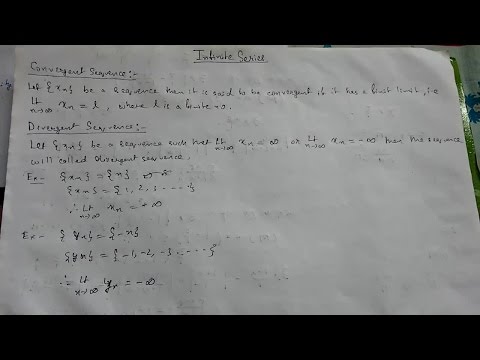 Infinite Series
Convergent Sequence:-
Let {xn} be a sequence then it is said to be convergent if it has a finite limit, i.e
Lt n→∞ xn = l, where l is a finite no.
Divergent Sequence:-
Let {xn} be a sequence such that Lt n→∞ xn = ∞ or Lt n→∞ xn = -∞ then the sequence
will called divergent sequence.
Ex- {xn} = {n},
{xn} = {1, 2, 3 - - - -}
∴ Lt n→∞ xn = +∞
Ex- {yn} = {-n}
{yn} = {-1, -2, -3 - - - -}
∴ Lt n→∞ yn = -∞